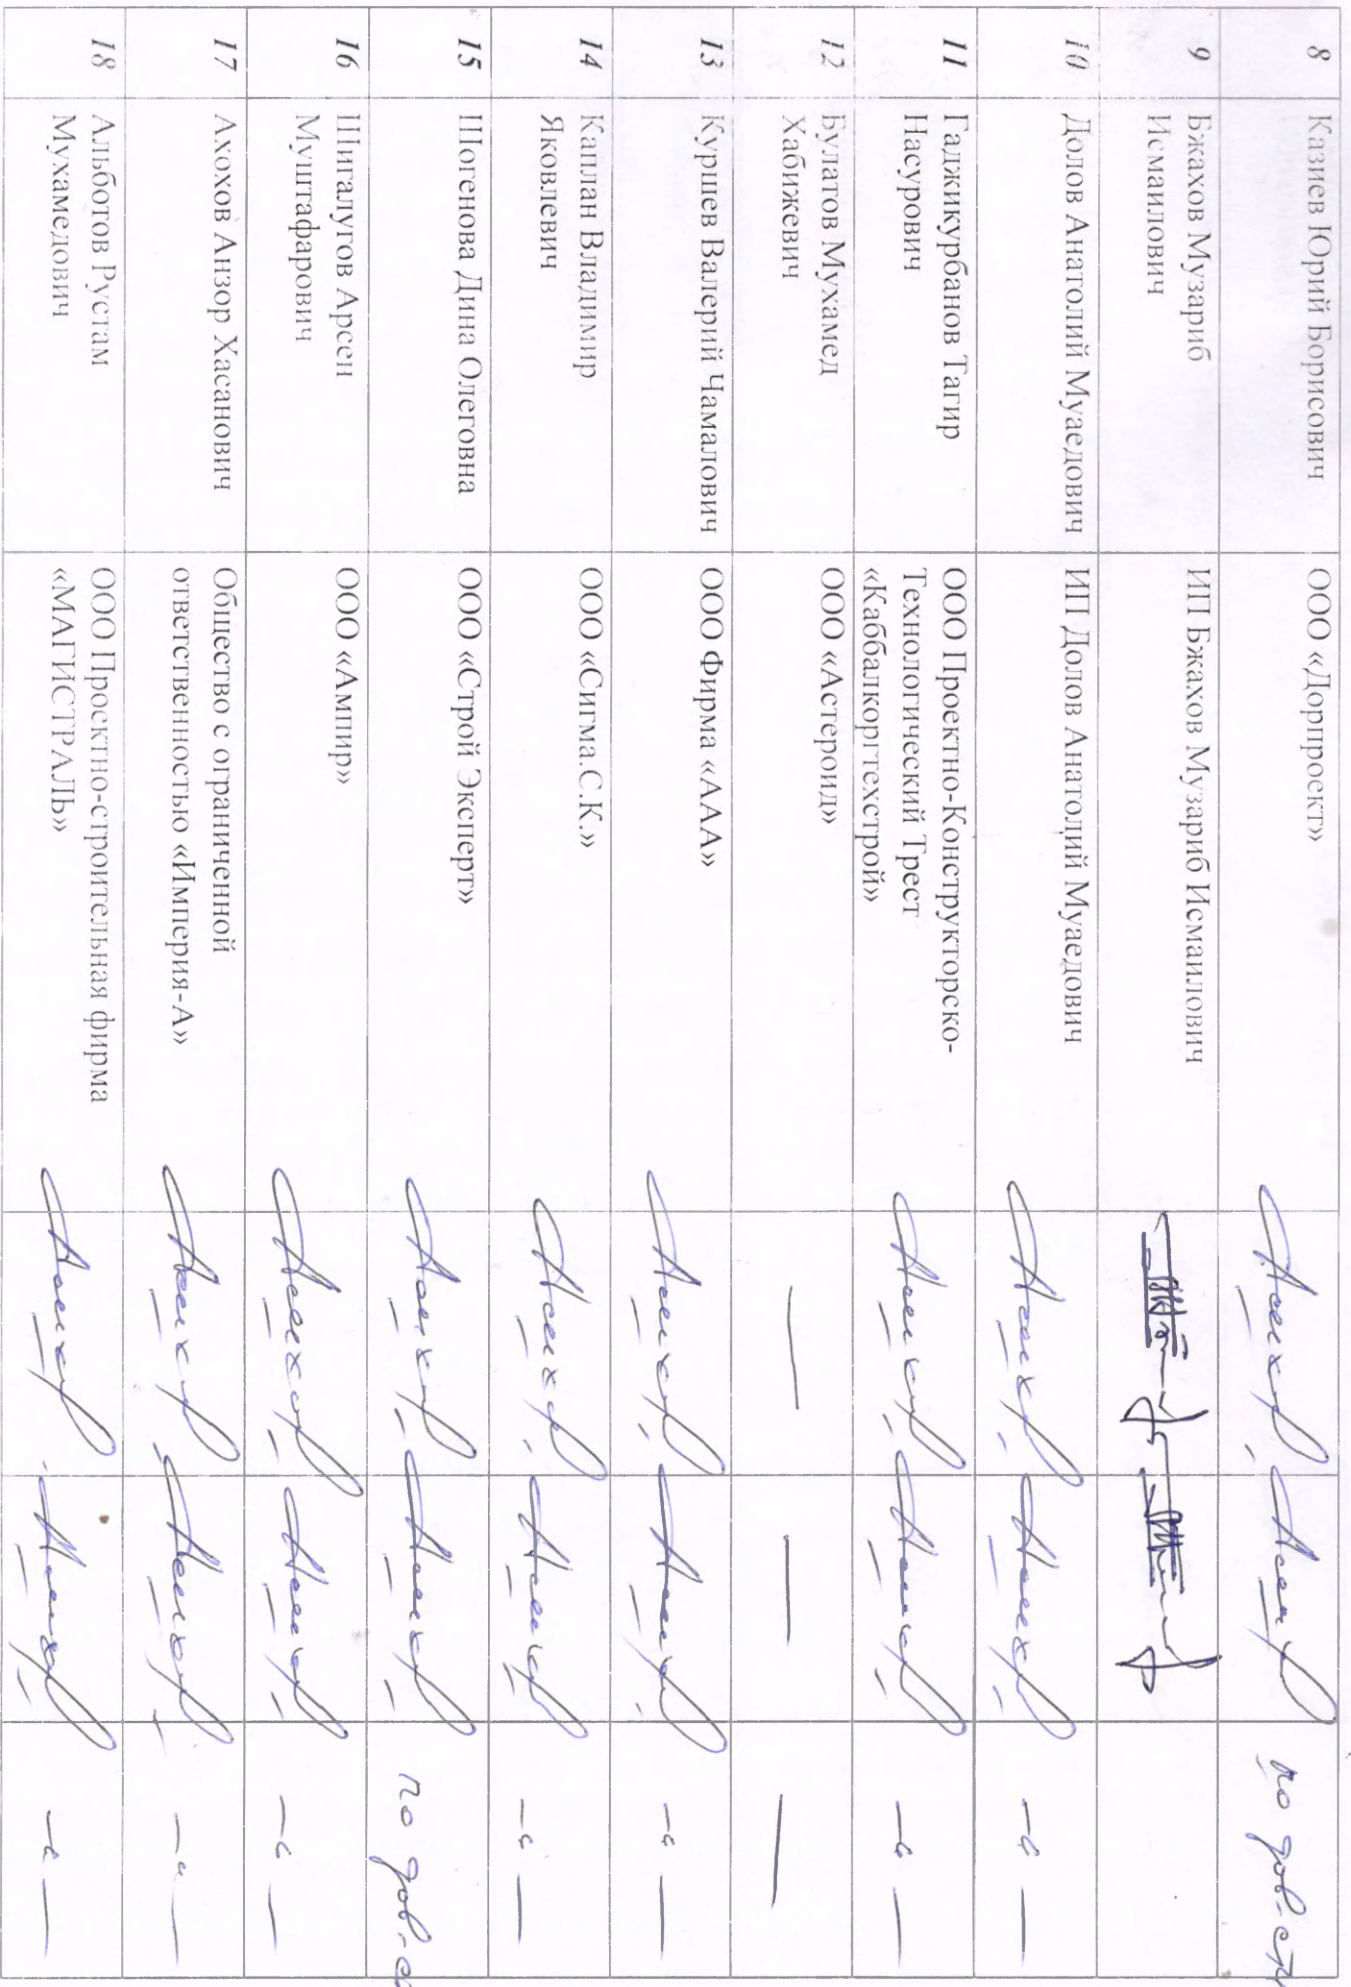 8
Казиев Юрий Борисович
ООО «Дорпроект»
по дов-сти
9
Бжахов Музариб
Исмаилович
ИП Бжахов Музариб Исмаилович
10
Долов Анатолий Муаедович
ИП Долов Анатолий Муаедович
—"—
11
Гаджикурбанов Тагир
Насурович
ООО Проектно-Конструкторско-
Технологический Трест
«Каббалкоргтехстрой»
—"—
12
Булатов Мухамед
Хабижевич
ООО «Астероид»
—
—
—
13
Куршев Валерий Чамалович
ООО Фирма «ААА»
—"—
14
Каплан Владимир
Яковлевич
ООО «Сигма.С.К.»
—"—
15
Шогенова Дина Олеговна
ООО «Строй Эксперт»
по дов-
16
Шигалугов Арсен
Муштафарович
ООО «Ампир»
—"—
17
Ахохов Анзор Хасанович
Общество с ограниченной
ответственностью «Империя-А»
—"—
18
Альботов Рустам
Мухамедович
ООО Проектно-строительная фирма
«МАГИСТРАЛЬ»
—"—